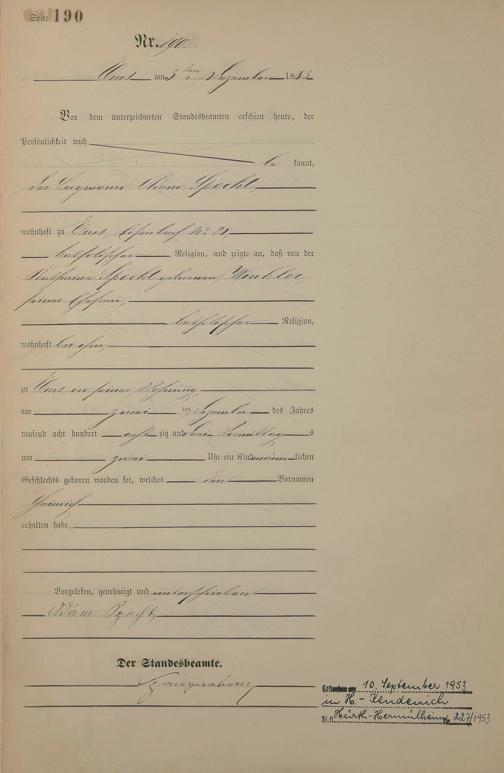 Seite 190
Nr. 190.
Ems am 3ten Dezember 1883
Vor dem unterzeichneten Standesbeamten erschien heute, der
Persönlichkeit nach
be kannt,
der Bergmann Adam Specht,
wohnhaft zu Ems, No 21
katholischer Religion, und zeigte an, daß von der
Katharina Specht geborenen Winkler
seiner Ehefrau,
katholischer Religion,
wohnhaft bei ihm,
zu Ems in seiner Wohnung
am zwei ten Dezember des Jahres
tausend acht hundert acht zig und drei Vormittags
um zwei Uhr ein Kind männlichen
Geschlechts geboren worden sei, welches den Vornamen
Heinrich
erhalten habe,
Vorgelesen, genehmigt und unterschrieben
Adam Specht
Der Standesbeamte.
Gestorben am 10. September 1953
in H.-Kendenich
St.A. Hürth-Hermülheim Nr. 227/1953